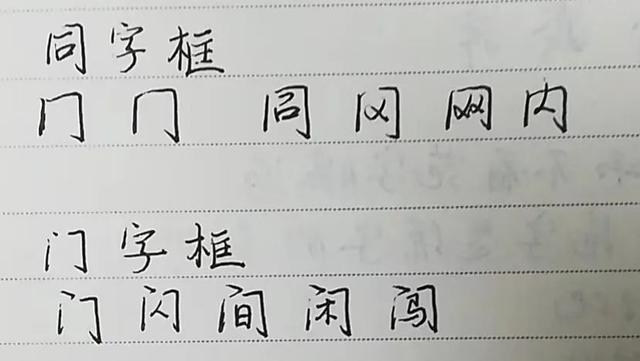 同字框
冂 冂 同 冈 网 内
门字框
门 闪 间 闲 闯